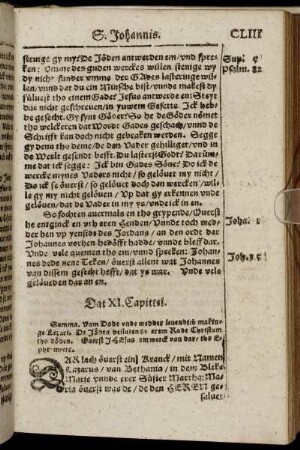 S. Johannis.
CLIII
steinige gy my? De Jöden antwerden em/ vnd spre-
ken: Vmme des guden werckes willen steinige wy
dy nicht/ sunder vmme der Gades lasteringe wil-
len/ vnnd dat du ein Minsche bist/ vnnde makest dy
süluest tho einem Gade? Jesus antwerde en: Steyt
dar nicht geschreuen/ in yuwem Gesette: Ick hebb
de gesecht/ Gy synt Göder? So he de Göder nömet
tho welckeren dat Wordt Gades geschach/ vnnd de
Schrifft kan doch nicht gebraken werden. Segge
gy denn tho deme/ de dan Vader hilliget/ vnd in
de Werlt gesendt hefft. Du lasterst Godt? Darüm-
me dat ick segge: Ick bin Gades Söne? Do ick de
wercke mynes Vaders nicht/ so gelöuet my nicht/
Do ick se öuerst/ so gelöuet doch den wercken/ wil-
le gy my nicht gelöuen/ Vp dat gy erkennen vnde
gelöuen/ dat de Vader in my ys/ vnde ick in en.
So sochten auermals en tho grypende/ Öuerst
he entginck en vth eren Henden/ Vnnde toch wed-
der hen vp yensids des Jordans/ an den Orde dar
Johannes vorhen dedöfft hadde/ vnnde bleff dar.
Vnde vele quemen tho em/ vnnd spreken: Johan-
nes dede nene Teken/ öuerst allent wat Johannes
van dissem gesecht hefft/ dat ys war. Vnde vele
gelöueden dar an en.
Sup. 5
Psalm. 82
Joha. 1
Joh. 1.5
Dat XI. Capittel.
Summa. Vam Dode vnde wedder leuendich makin-
ge Lazari. De Jöden besluten in erem Rade Christum
tho döden. Öuerst JHEsus entweck van dar/ tho E-
phr-
Dar lach öuerst ein Krancke/ mit Namen
Lazarus/ van Bethania/ in dem Bleke
Marie vnnde erer Süster Martha: Ma-
ria öuerst was de/ de den HEREN ge-
saluet